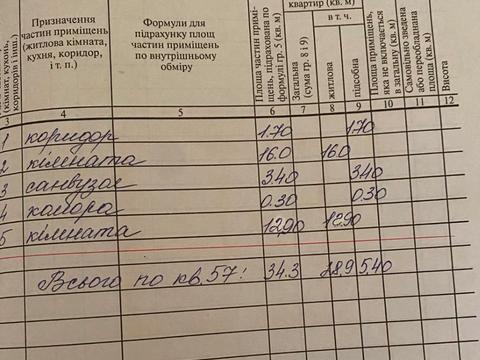 (кімнат, кухонь, коридорів і інш.)
Призначення частин приміщень (житлова кімната, кухня, коридор, і т. п.)
Формули для підрахунку площ частин приміщень по внутрішньому обміру
Площа частин приміщень, підрахована по формулі гр. 5 (кв. м)
квартир (кв. м)
Загальна (сума гр. 8 і 9)
в т. ч.
житлова
підсобна
Площа приміщень, яка не включається в загальну (кв. м)
Самовільно зведена або переобладнана площа (кв. м)
Висота
3 4 5 6 7 8 9 10 11 12
1 коридор 1.70 1.70
2 кімната 16.0 16.0
3 санвузол 3.40 3.40
4 комора 0.30 0.30
5 кімната 12,90 12,90
Всього по кв. 57: 34.3 28,9 5,40